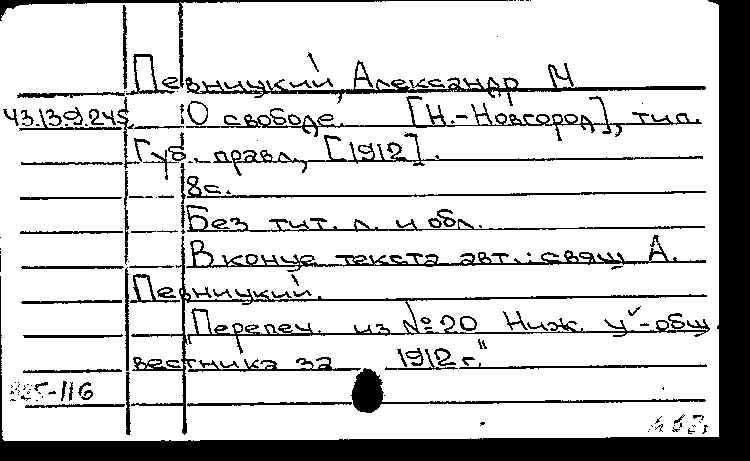 Певницкий, Александр М
43.139.245 О свободе. [Н.-Новгород], тип.
Губ. правл., [1912].
8с.
Без тит. л. и обл.
В конце текста авт.: свящ А.
Певницкий.
Перепеч. из № 20 Ниж. ц-общ
вестника за 1912 г."
885-116